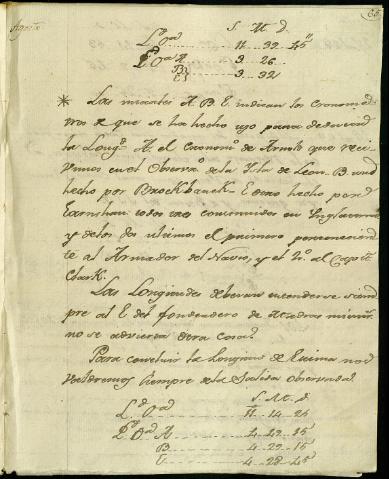 Agosto
S. M. d.
L.ª O.ª 11. 32. 45"
L.ª O.ª A 3. 26
B
E 3. 32
* Las iniciales A. B. E. indican los cronome-
tros de que se ha hecho uso para deducir
la Long.ª A. el Cronom.º de Arnold que reci-
vimos en el Observ.º de la Isla de Leon. B. uno
hecho por Brockbanck. E. otro hecho por
Earnshau todos tres construidos en Inglaterra
y de los dos ultimos el primero perteneciente
te al Armador del Navio, y el 2.º al Capt.n
Clark.
Las Longitudes deberan entenderse siem-
pre al E. del fondeadero de
no se advierta otra cosa.
Para concluir la Longitud de Lima nos
valdremos siempre de la Salida Observada.
S. M. d.
L.ª O.ª 11. 14. 26
L.ª O.ª A 4. 29. 15
B 4. 29. 15
E 4. 28. 45